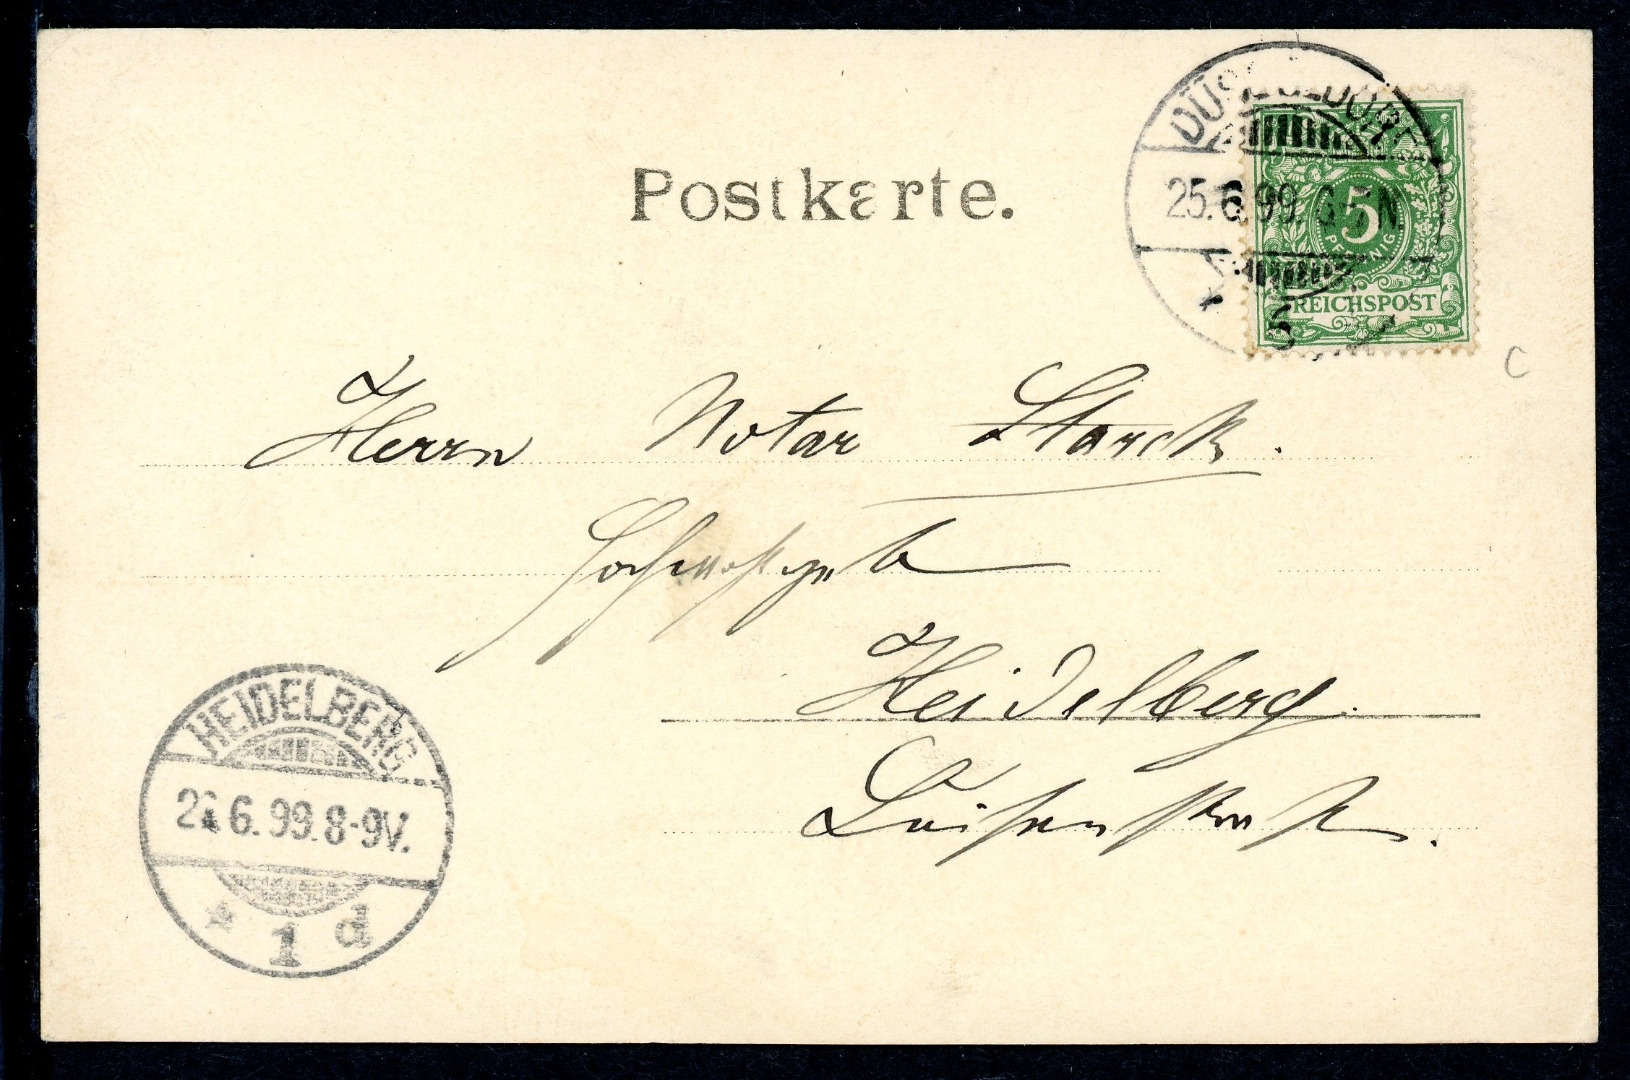 Postkarte.
DÜSSELDORF
25.6.99. 6-7N.
5
PFENNIG
REICHSPOST
Herrn Notar Starck.
Hochwohlgeb
Heidelberg.
Luisenstraße.
HEIDELBERG
26.6.99.8-9V.
* 1 d
C